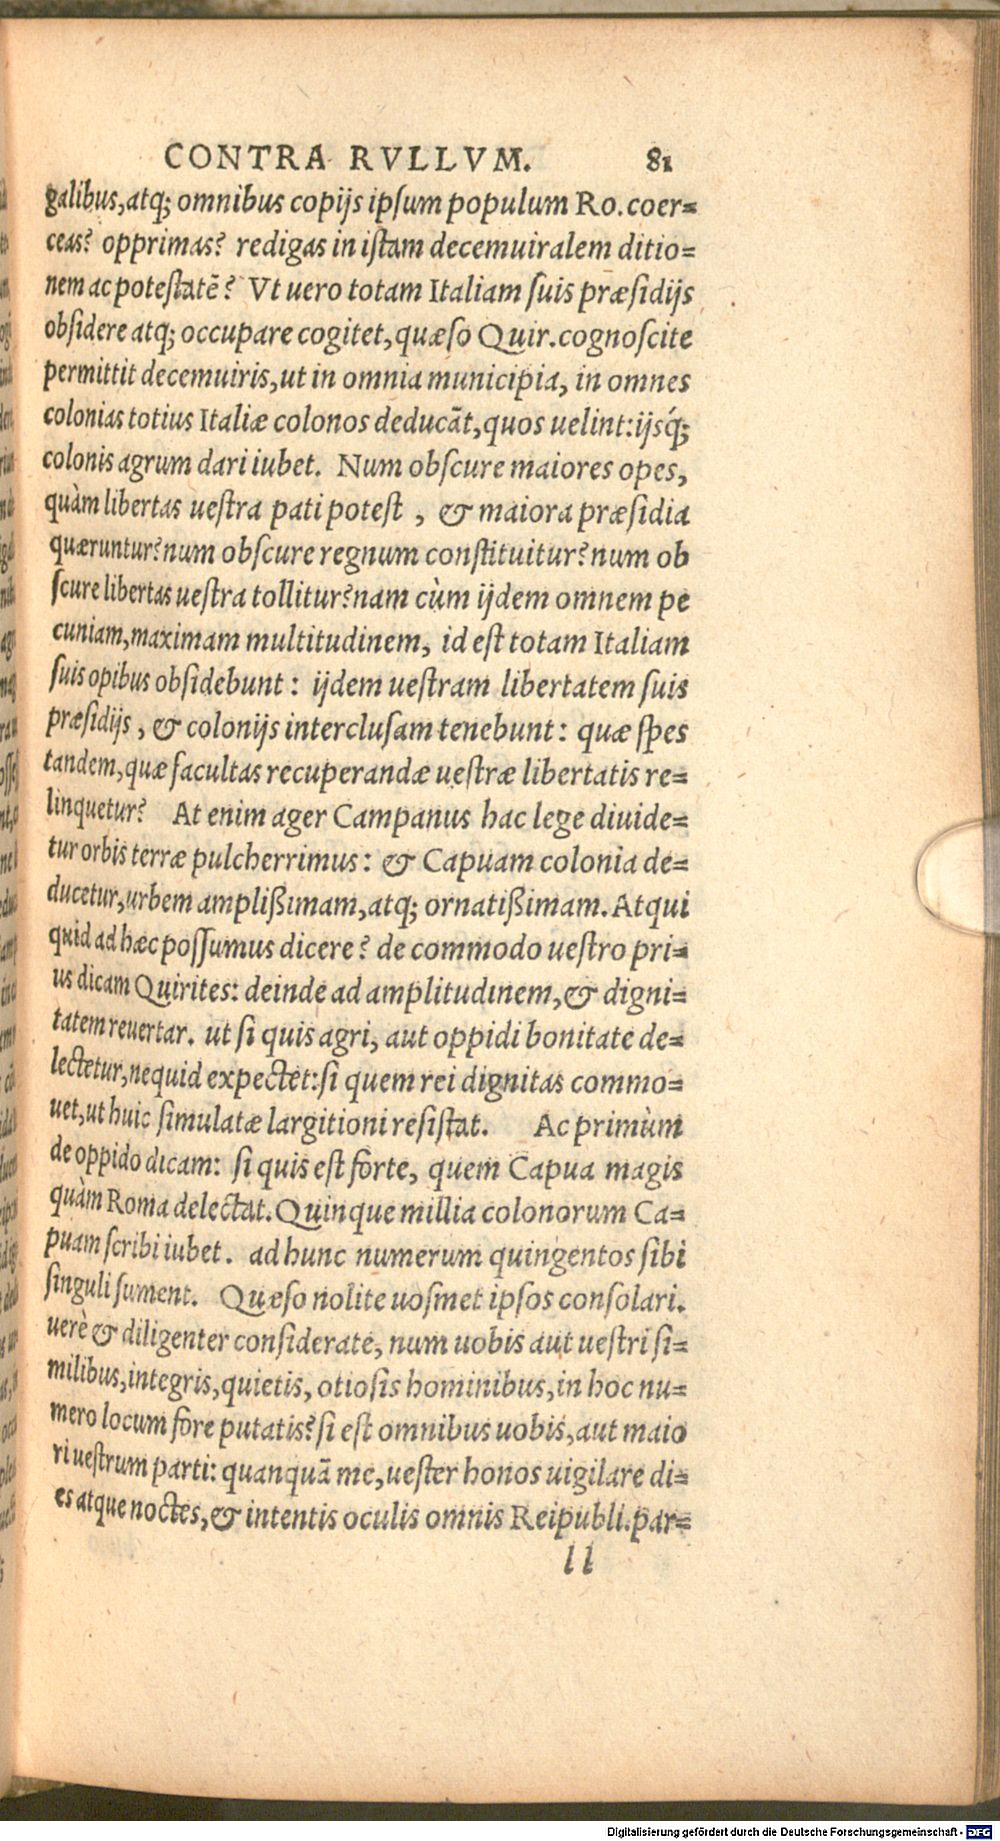 CONTRA RVLLVM. 81
galibus,atq; omnibus copijs ipſum populum Ro.coer=
ceas? opprimas? redigas in iſtam decemuiralem ditio=
nem ac poteſtatē? Vt uero totam Italiam ſuis præſidijs
obſidere atq; occupare cogitet,quæſo Quir.cognoſcite
permittit decemuiris,ut in omnia municipia, in omnes
colonias totius Italiæ colonos deducāt,quos uelint:ijsq́;
colonis agrum dari iubet. Num obſcure maiores opes,
quàm libertas ueſtra pati poteſt , & maiora præſidia
quæruntur?num obſcure regnum conſtituitur?num ob
ſcure libertas ueſtra tollitur?nam cùm ijdem omnem pe
cuniam,maximam multitudinem, id eſt totam Italiam
ſuis opibus obſidebunt : ijdem ueſtram libertatem ſuis
præſidijs , & colonijs intercluſam tenebunt : quæ ſpes
tandem,quæ facultas recuperandæ ueſtræ libertatis re=
linquetur? At enim ager Campanus hac lege diuide=
tur orbis terræ pulcherrimus : & Capuam colonia de=
ducetur,urbem amplißimam,atq; ornatißimam.Atqui
quid ad hæc poſſumus dicere? de commodo ueſtro pri=
us dicam Quirites: deinde ad amplitudinem,& digni=
tatem reuertar. ut ſi quis agri, aut oppidi bonitate de=
lectetur,nequid expectet:ſi quem rei dignitas commo=
uet,ut huic ſimulatæ largitioni reſiſtat. Ac primùm
de oppido dicam: ſi quis eſt forte, quem Capua magis
quàm Roma delectat.Quinque millia colonorum Ca=
puam ſcribi iubet. ad hunc numerum quingentos ſibi
ſinguli ſument. Quæſo nolite uoſmet ipſos conſolari.
uerè & diligenter conſiderate, num uobis aut ueſtri ſi=
milibus,integris,quietis, otioſis hominibus,in hoc nu=
mero locum fore putatis?ſi eſt omnibus uobis,aut maio
ri ueſtrum parti: quanquā me,ueſter honos uigilare di=
es atque noctes,& intentis oculis omnis Reipubli.par=
ll
Digitalisierung gefördert durch die Deutsche Forschungsgemeinschaft - DFG